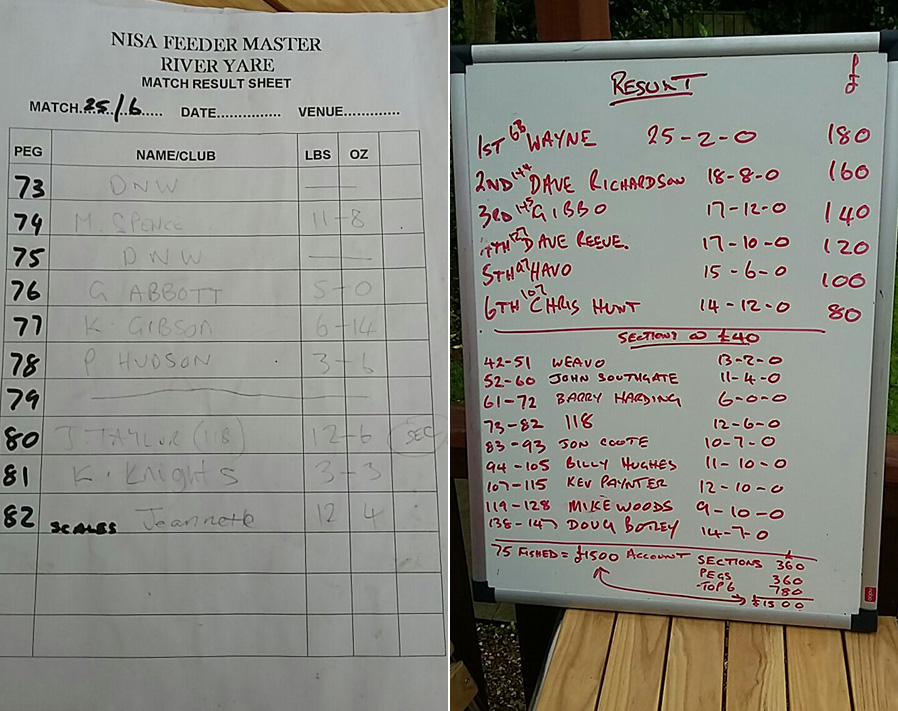 NISA FEEDER MASTER
RIVER YARE
MATCH RESULT SHEET
MATCH..25/6..... DATE............... VENUE.............
PEG NAME/CLUB LBS OZ
73 DNW —
74 M. SPENCE 11-8
75 DNW —
76 G ABBOTT 5-0
77 K. GIBSON 6-14
78 P HUDSON 3-6
79
80 J. TAYLOR (118) 12-6 SEC
81 K. Knights 3-3
82 SCALES Jeannette 12 4
RESULT £
1ST 68 WAYNE 25-2-0 180
2ND 144 DAVE RICHARDSON 18-8-0 160
3RD 145 GIBBO 17-12-0 140
4TH 127 DAVE REEVE. 17-10-0 120
5TH 97 HAVO 15-6-0 100
6TH 107 CHRIS HUNT 14-12-0 80
SECTIONS @ £40
42-51 WEAVO 13-2-0
52-60 JOHN SOUTHGATE 11-4-0
61-72 BARRY HARDING 6-0-0
73-82 118 12-6-0
83-93 JON COOTE 10-7-0
94-105 BILLY HUGHES 11-10-0
107-115 KEV PAYNTER 12-10-0
119-128 MIKE WOODS 9-10-0
138-147 DOUG BOTLEY 14-7-0
75 FISHED = £1500 ACCOUNT SECTIONS 360
PEGS 360
TOP 6 780
£1500
nobo